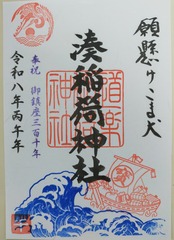 願懸けこま犬
湊稲荷神社
奉祝 御鎮座三百十年
令和八年丙午年